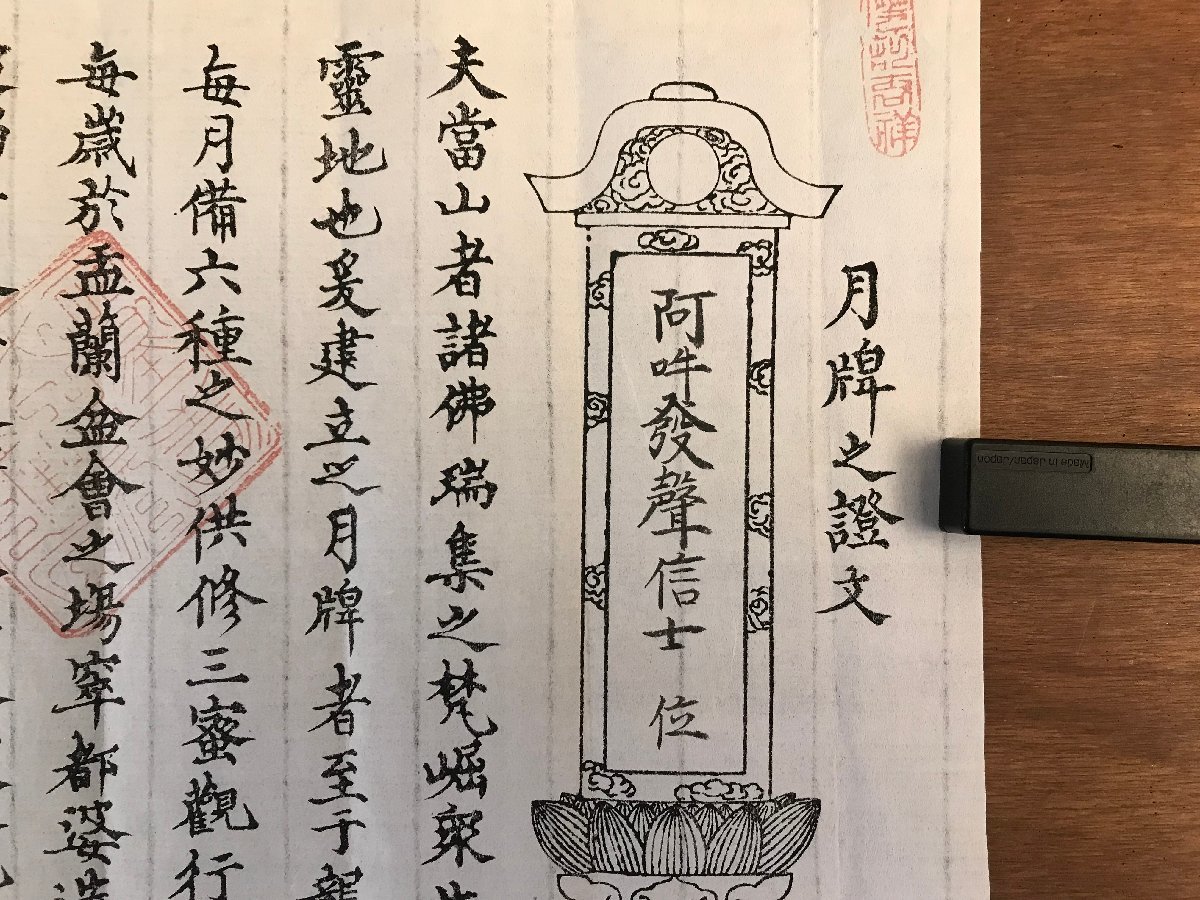 月牌之證文
阿吽發聲信士 位
夫當山者諸佛瑞集之梵崛聚
靈地也爰建立之月牌者至于龍
每月備六種之妙供修三蜜觀行
每歲於盂蘭盆會之場窣都婆造
Made in Japan/Japon